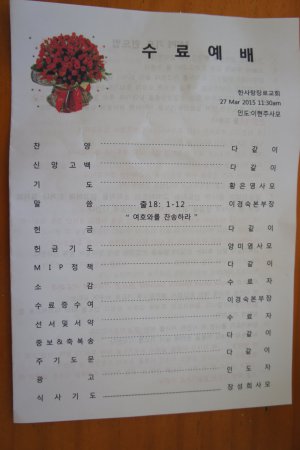 수료예배
한사랑장로교회
27 Mar 2015 11:30am
인도:이현주사모
찬 양 다 같 이
신 앙 고 백 다 같 이
기 도 황 은 영 사 모
말 씀 출18: 1-12 이경숙본부장
“ 여호와를 찬송하라 ”
헌 금 다 같 이
헌 금 기 도 양 미 영 사 모
M I P 정 책 다 같 이
소 감 수 료 자
수 료 증 수 여 이경숙본부장
선 서 및 서 약 수 료 자
중보&축복송 다 같 이
주 기 도 문 다 같 이
광 고 인 도 자
식 사 기 도 장 성 희 사 모